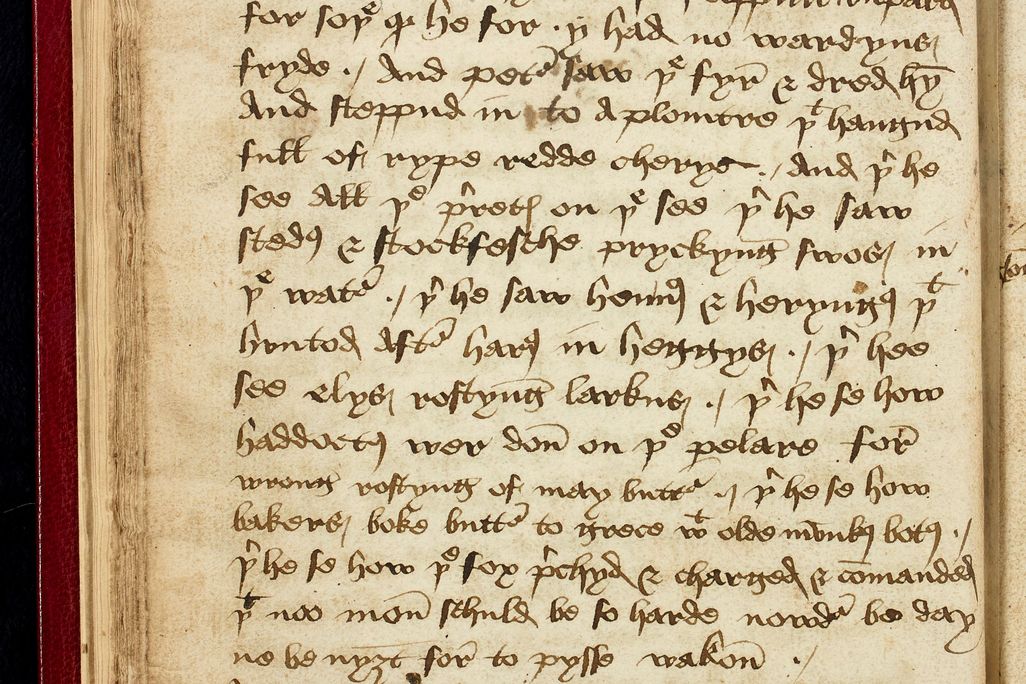 for soþᵉ qᵈ he for . y had no wardyus
fryde ./ And petʳ saw þᵉ fyr̄ & dred hȳ
And steppud in to A plomtre þᵗ hangud
full of rype redde cherys ./ And þʳ he
see All þᵉ pʳretꝭ on þᵉ see þʳ he saw
stedꝭ & stockfesche pryckyng swos in
þᵉ watʳ ./ þʳ he saw hennꝭ & heryngꝭ þᵗ
huntod Aftʳ harꝭ in heggys ./ þʳ hee
see elys rostyng larkus ./ þʳ he se how
haddoctꝭ wer don̄ on þᵉ pelare for̄
wrong rostyng of may buttʳ ./ þʳ he se how
bakers boke buttʳ to grece wᵗ olde mōnkꝭ botꝭ ./
þʳ he se how þᵉ fox pʳchyd & charged & cōmanded
þᵗ noo mon̄ schuld be so harde nowdʳ be day
ne be nyȝt for̄ to pysse wakon̄ ./